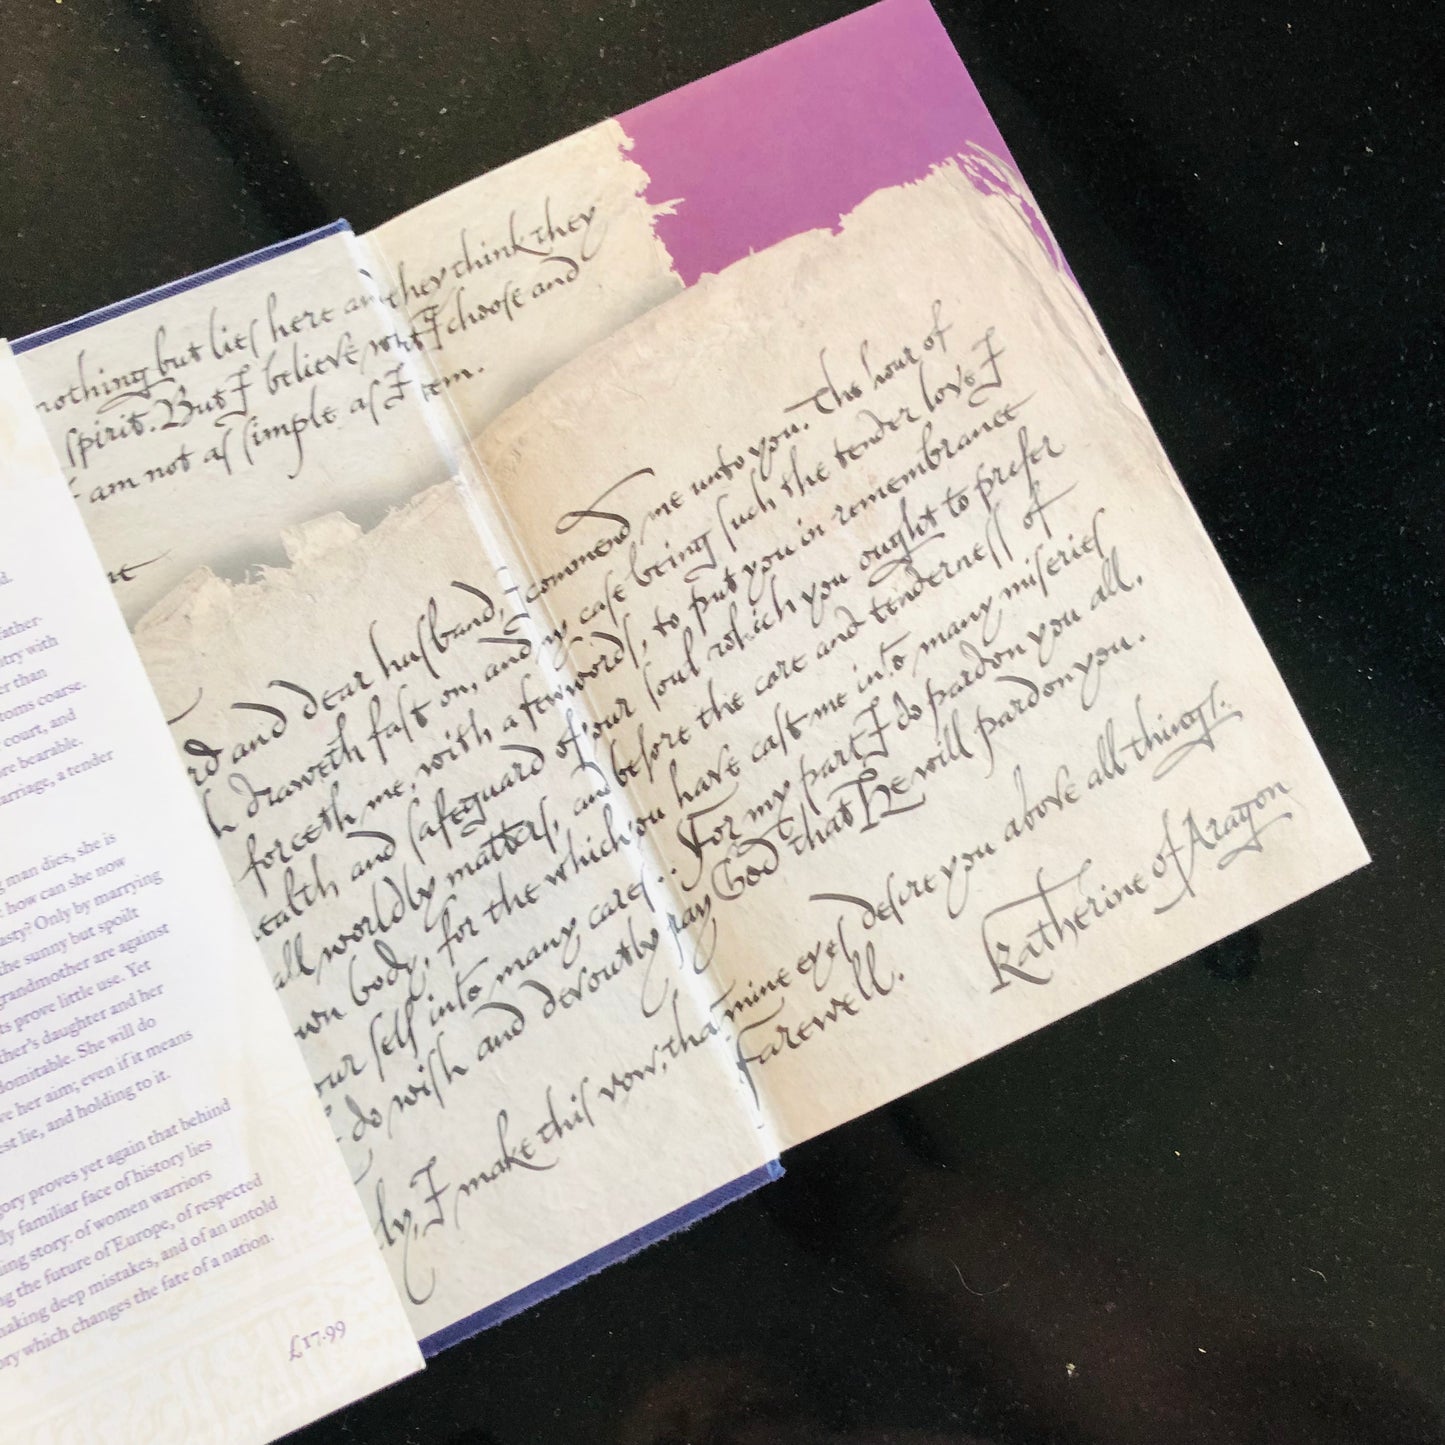 nothing but lies here and they think they
spirit. But I believe not I choose and
I am not as simple as I seem.
and dear husband, I commend me unto you. The hour of
draweth fast on, and my case being such the tender love I
forceth me, with a few words, to put you in remembrance
ealth and safeguard of your soul which you ought to prefer
all worldly matters, and before the care and tenderness of
wn body, for the which you have cast me into many miseries
our self into many cares.. For my part I do pardon you all,
do wish and devoutly pray God that He will pardon you.
ly, I make this vow, that mine eyes desire you above all things.
Farewell.
Katherine of Aragon
d.
father-
ntry with
er than
toms coarse.
court, and
ore bearable.
arriage, a tender
g man dies, she is
how can she now
asty? Only by marrying
the sunny but spoilt
grandmother are against
ts prove little use. Yet
ther's daughter and her
domitable. She will do
ve her aim; even if it means
est lie, and holding to it.
gory proves yet again that behind
ly familiar face of history lies
ing story: of women warriors
ng the future of Europe, of respected
making deep mistakes, and of an untold
ory which changes the fate of a nation.
£17.99